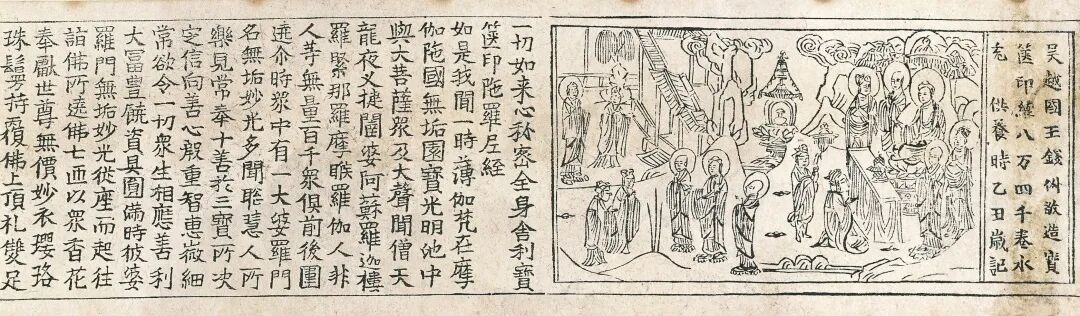 吴越國王錢俶敬造寶
篋印經八万四千卷永
充供養時乙丑歳記
一切如来心秘密全身舍利寶
篋印陁羅尼経
如是我聞一時薄伽梵在摩
伽陁國無垢園寶光明池中
與大菩薩衆及大聲聞僧天
龍夜叉揵闥婆阿蘇羅迦樓
羅緊那羅摩睺羅伽人非
人等無量百千衆俱前後圍
遶尒時衆中有一大婆羅門
名無垢妙光多聞聡慧人所
樂見常奉十善於三寶所决
定信向善心殷重智恵微細
常欲令一切衆生相應善利
大冨豐饒資具圓滿時彼婆
羅門無垢妙光從座而起往
詣佛所遶佛七匝以衆香花
奉獻世尊無價妙衣瓔珞
珠鬘持覆佛上頂礼雙足